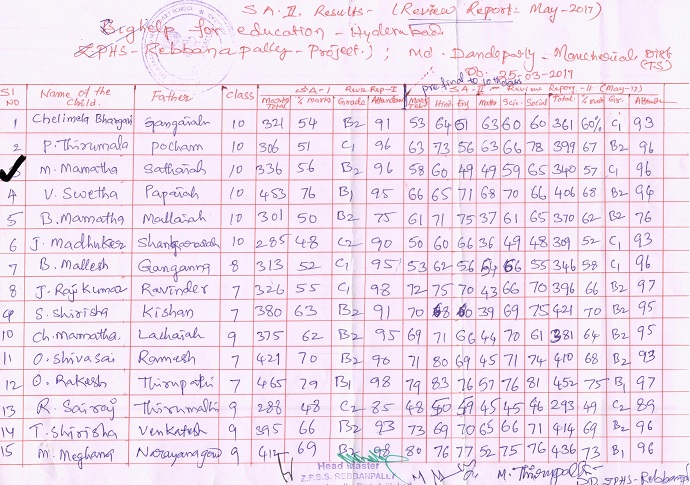 S A - II. Results - (Review Report: May-2017)
Bighelp for education - Hyderabad.
ZPHS - Rebbanapally - Project); Md. Dandepally - Mancherial Dist (TS)
Db: 25-03-2017
Sl NO Name of the Child. Father Class SA-I Reve Rep-I SA-II Review Report-II (May-17)
Marks Total % Marks Grade Attendance Hindi Eng Maths Scie. Social Total % Gr.
1 Chelimela Bhargavi Gangaiah 10 321 54 B2 91 53 64 51 63 60 60 361 60% C1 93
2 P. Thirumala Pocham 10 306 51 C1 96 63 73 56 63 66 78 399 67 B2 96
3 M. Mamatha Sathaiah 10 336 56 B2 96 58 60 49 49 59 65 340 57 C1 96
4 V. Swetha Papaiah 10 453 76 B1 95 66 65 71 68 70 66 406 68 B2 94
5 B. Mamatha Mallaiah 10 301 50 B2 75 61 71 75 37 61 65 370 62 B2 76
6 J. Madhuker 10 285 48 C2 90 50 60 66 36 49 48 309 52 C1 93
7 B. Mallesh Ganganna 8 313 52 C1 95 53 62 56 54 66 55 346 58 C1 96
8 J. Raj Kumar Ravinder 7 326 55 C1 98 72 75 70 43 66 70 396 66 B2 97
9 S. Shirisha Kishan 7 380 63 B2 91 70 68 60 39 69 75 421 70 B2 95
10 Ch. Mamatha. Lachaiah 9 375 62 B2 95 69 71 66 44 70 61 381 64 B2 95
11 O. Shivasai Ramesh 7 421 70 B2 90 71 80 69 45 71 74 410 68 B2 93
12 O. Rakesh Thirupathi 7 465 79 B1 98 79 83 76 57 76 81 452 75 B1 97
13 R. Sairaj Thirumalli 9 288 48 C2 85 48 60 49 45 45 46 293 49 C2 89
14 T. Shirisha Venkatesh 9 395 66 B2 93 73 69 70 65 66 71 414 69 B2 96
15 M. Meghana Narayanagoud 9 412 69 B2 98 80 76 77 52 75 76 436 73 B1 96
Head Master
Z.P.S.S. REBBANPALLY
M. Thirupathi
ZPHS - Rebbanapally